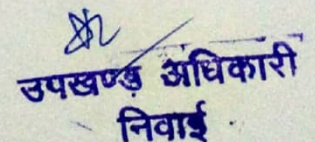 उपखण्ड़ अधिकारी
निवाई